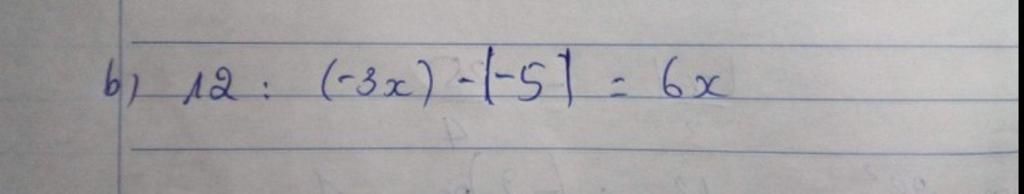 b) 12 : (-3x) - |-5| = 6x